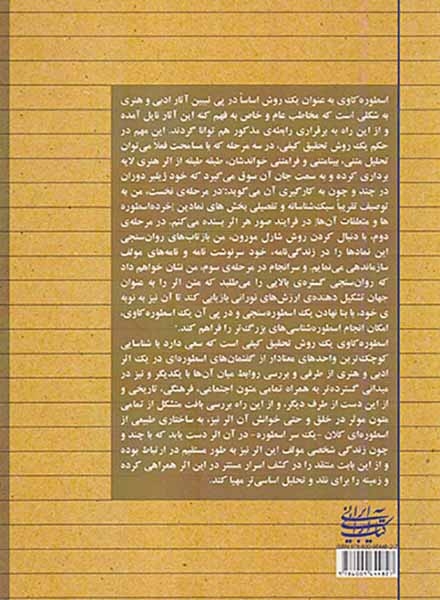 اسطوره‌کاوی به عنوان یک روش اساساً در پی تبیین آثار ادبی و هنری
به شکلی است که مخاطب عام و خاص به فهم کنه این آثار نایل آمده
و از این راه به برقراری رابطه‌ی مذکور هم توانا گردند. این مهم در
حکم یک روش تحقیق کیفی، در سه مرحله که با مسامحت فعلا می‌توان
تحلیل متنی، بینامتنی و فرامتنی خواندشان، طبقه طبقه از اثر هنری لایه
برداری کرده و به سمت جان آن سوق می‌گیرد که خود ژیلبر دوران
در چند و چون به کارگیری آن می‌گوید: «در مرحله‌ی نخست، من به
توصیف تقریباً سبک‌شناسانه و تفصیلی بخش های نمادین [خرده‌اسطوره‌ها
و متعلقات آن‌ها] در فرایند صور هر اثر بسنده می‌کنم. در مرحله‌ی
دوم، با دنبال کردن روش شارل مورون، من بازتاب‌های روان‌سنجی
این نمادها را در زندگی‌نامه، خود سرنوشت نامه و نامه‌های مولف
سازماندهی می‌نمایم. و سرانجام در مرحله‌ی سوم، من نشان خواهم داد
که روان‌سنجی گستره‌ی بالایی را می‌طلبد که متن اثر را به عنوان
جهان تشکیل دهنده‌ی ارزش‌های نورانی بازیابی کند تا آن نیز به نوبه
ی خود، با بنا نهادن یک اسطوره‌سنجی و در پی آن یک اسطوره‌کاوی،
امکان انجام اسطوره‌شناسی‌های بزرگ‌تر را فراهم کند.»
اسطوره‌کاوی یک روش تحقیق کیفی است که سعی دارد با شناسایی
کوچک‌ترین واحدهای معنادار از گفتمان‌های اسطوره‌ای در یک اثر
ادبی و هنری از طرفی و بررسی روابط میان آن‌ها با یکدیگر و نیز در
میدانی گسترده‌تر به همراه تمامی متون اجتماعی، فرهنگی، تاریخی و
از این دست از طرف دیگر، و از این راه بررسی بافت متشکل از تمامی
متون موثر در خلق و حتی خوانش آن اثر نیز، به ساختاری طبیعی از
اسطوره‌ای کلان -یک سر اسطوره- در آن اثر دست یابد که با چند و
چون زندگی شخصی مولف این اثر نیز به طور مستقیم در ارتباط بوده
و از این بابت منتقد را در کشف اسرار مستتر در این اثر همراهی کرده
و زمینه را برای نقد و تحلیل اساسی‌تر مهیا کند.
کتاب آبان